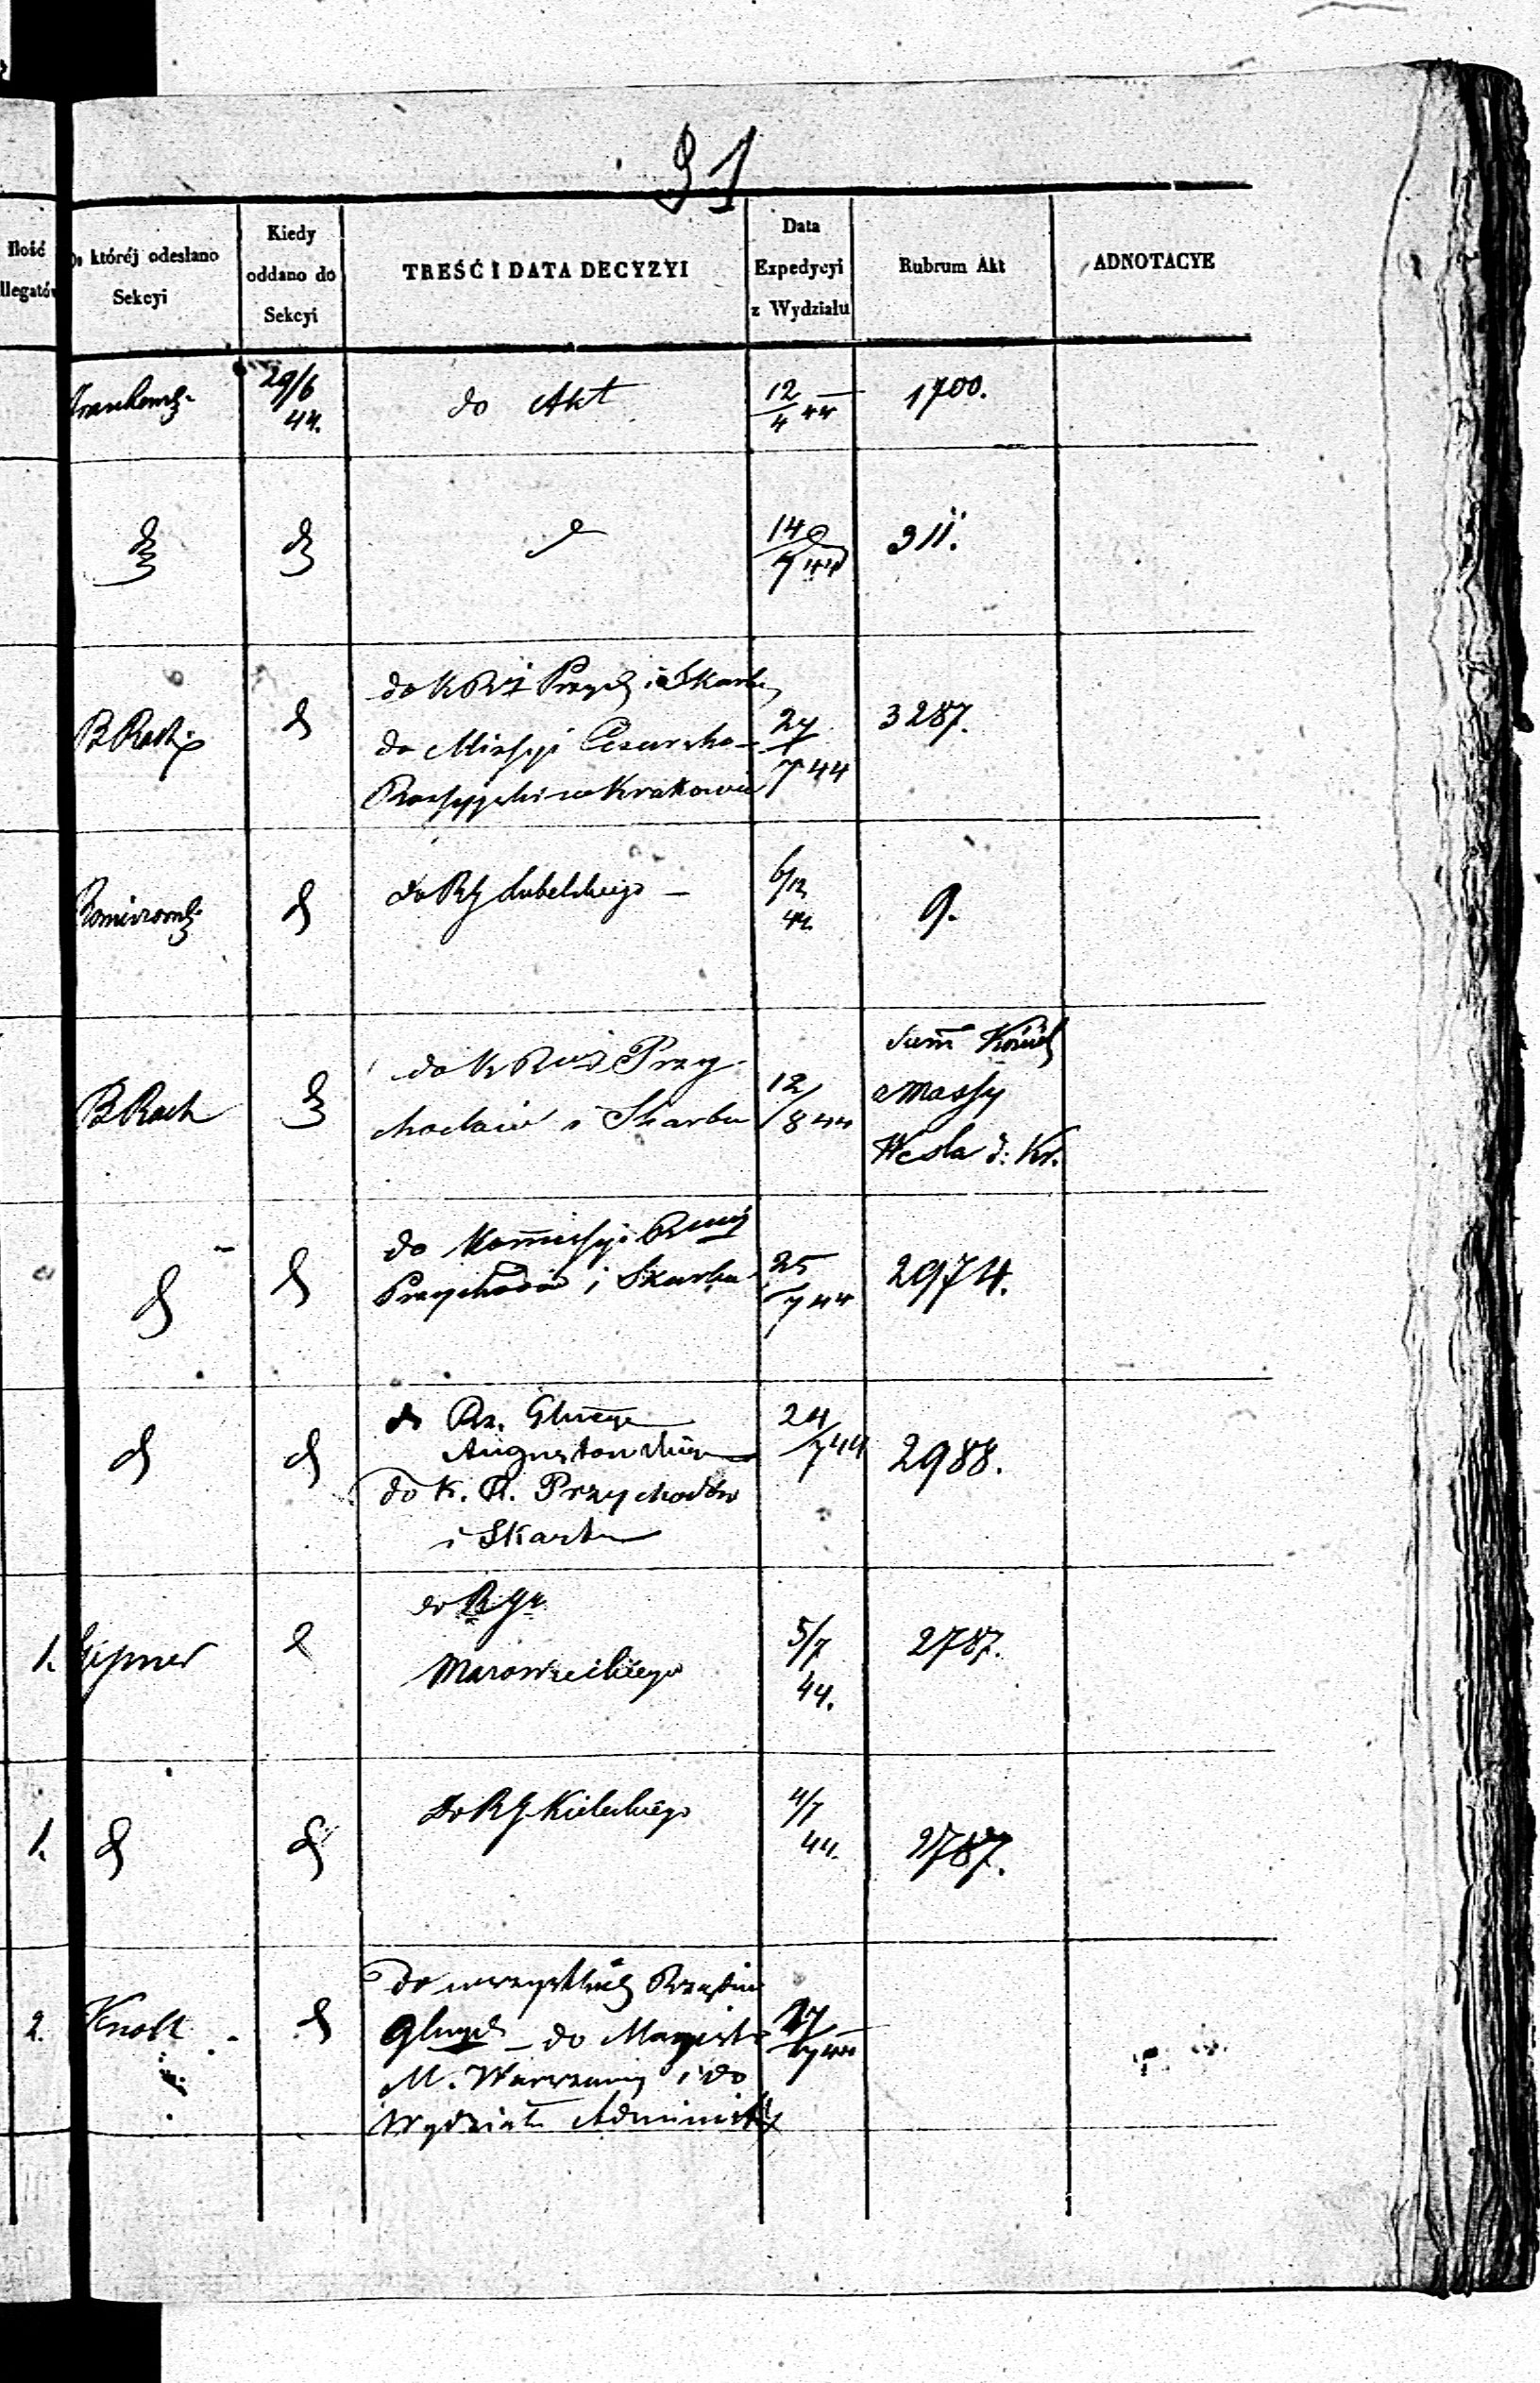 91
Ilość
llegatów
Do któréj odesłano
Sekcyi
Kiedy
oddano do
Sekcyi
TREŚĆ I DATA DECYZYI
Data
Expedycyi
z Wydziału
Rubrum Akt
ADNOTACYE
29/6
44.
do Akt
12/4 44
1700.
d
d
d
14/7 44
311.
B Rach
d
do K R i Przych i Skarbu
do Missyi Cesarsko-
Rossyyski w Krakowie
27/7 44
3287.
d
do RG Lubelskiego –
6/12
44.
9.
B Rach
d
do K Rząd Przy-
chodów i Skarbu
12/8 44
Sum Kośćiel
z Massy
Wesla d: Kr.
d
d
do Kommissyi Rząd
Przychodów i Skarbu
25/7 44
2974.
d
d
do Rz. Gbuege
Augustowskiego
do K. R. Przychodów
i Skarbu
24/7 44
2988.
1.
d
do R Gu
Mazowieckiego
5/7
44.
2787.
1.
d
d
do RG Kieleckiego
4/7
44.
2787.
2.
Knoll
d
do wszystkich Rządów
Gbnych – do Magistr
M. Warszawy i do
Wydziału Administr
27/7 44